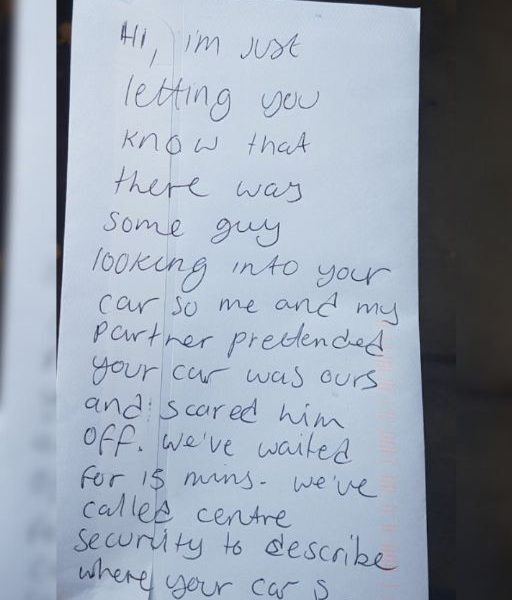 Hi, im just
letting you
know that
there was
some guy
looking into your
car so me and my
partner pretended
your car was ours
and scared him
off. we've waited
for 15 mins. we've
called centre
security to describe
where your car s